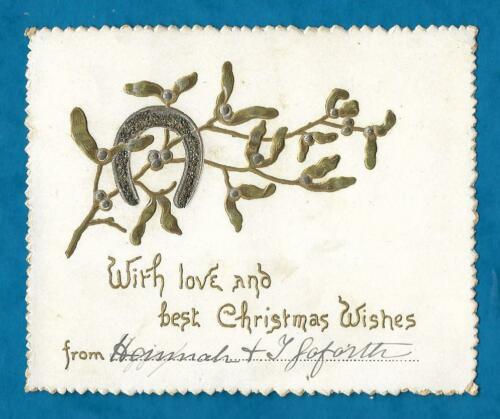 With love and
best Christmas Wishes
from Hannah & T Goforth